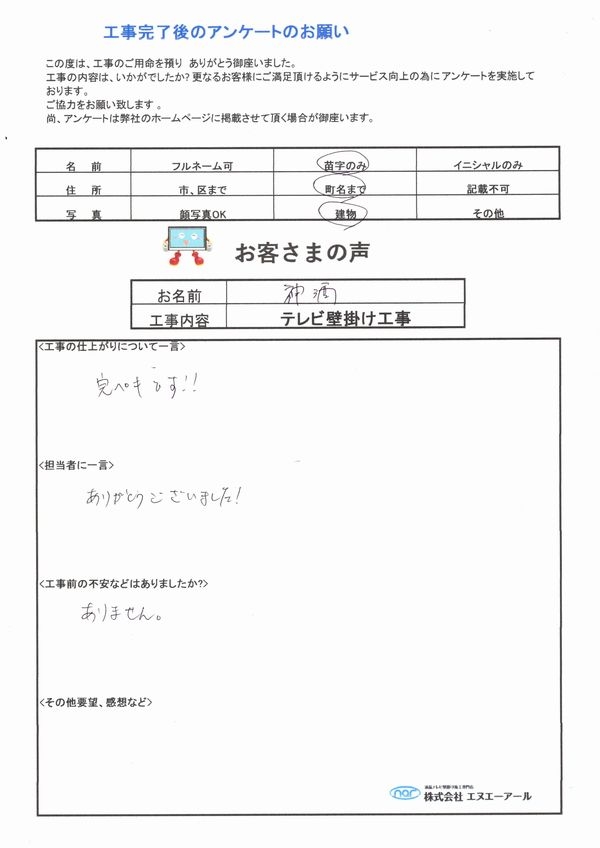 工事完了後のアンケートのお願い
この度は、工事のご用命を預り ありがとう御座いました。
工事の内容は、いかがでしたか? 更なるお客様にご満足頂けるようにサービス向上の為にアンケートを実施して
おります。
ご協力をお願い致します 。
尚、アンケートは弊社のホームページに掲載させて頂く場合が御座います。
名 前 フルネーム可 苗字のみ イニシャルのみ
住 所 市、区まで 町名まで 記載不可
写 真 顔写真OK 建物 その他
お客さまの声
お名前 神酒
工事内容 テレビ壁掛け工事
<工事の仕上がりについて一言>
完ペキです!!
<担当者に一言>
ありがとうございました!
<工事前の不安などはありましたか?>
ありません。
<その他要望、感想など>
nar 株式会社 エヌエーアール